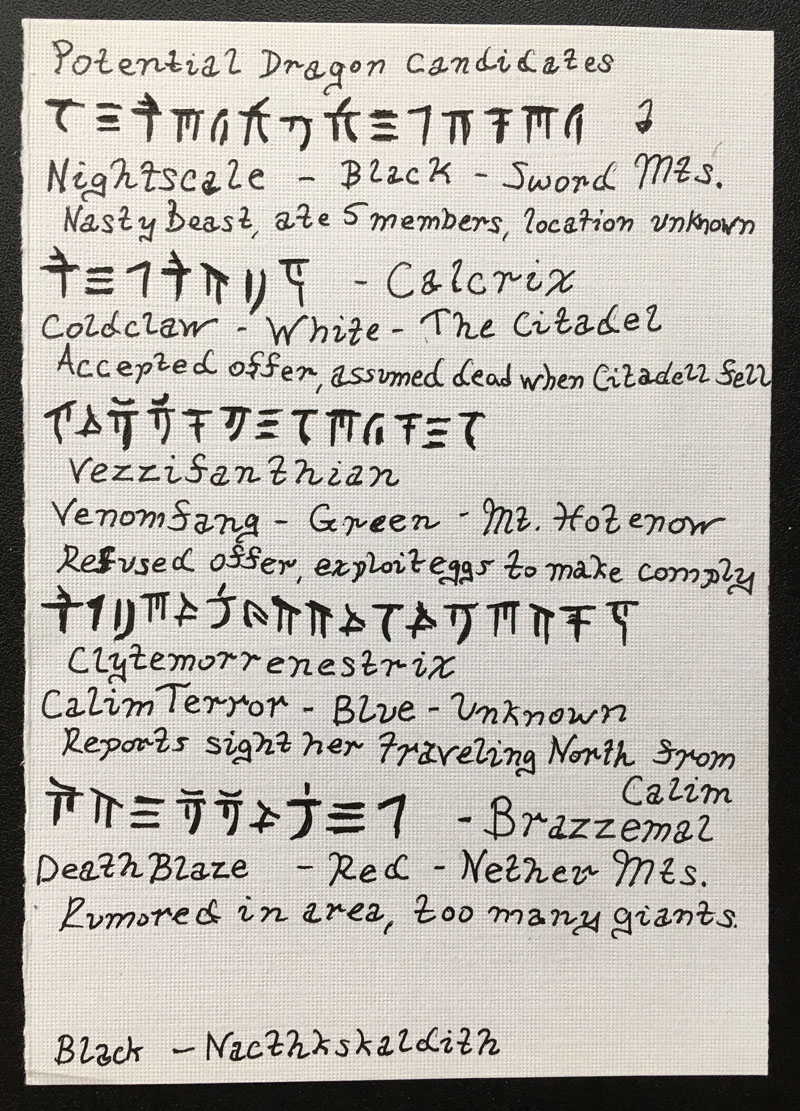 Potential Dragon Candidates
Nightscale - Black - Sword Mts.
Nasty Beast, ate 5 members, location unknown
- Calcrix
Coldclaw - White - The Citadel
Accepted offer, assumed dead when Citadell fell
Vezzifanthian
Venomfang - Green - Mt. Hotenow
Refused offer, exploit eggs to make comply
Clytemorrenestrix
Calim Terror - Blue - Unknown
Reports sight her traveling North from
Calim
- Brazzemal
Death Blaze - Red - Nether Mts.
Rumored in area, too many giants.
Black - Nacthkskaldith